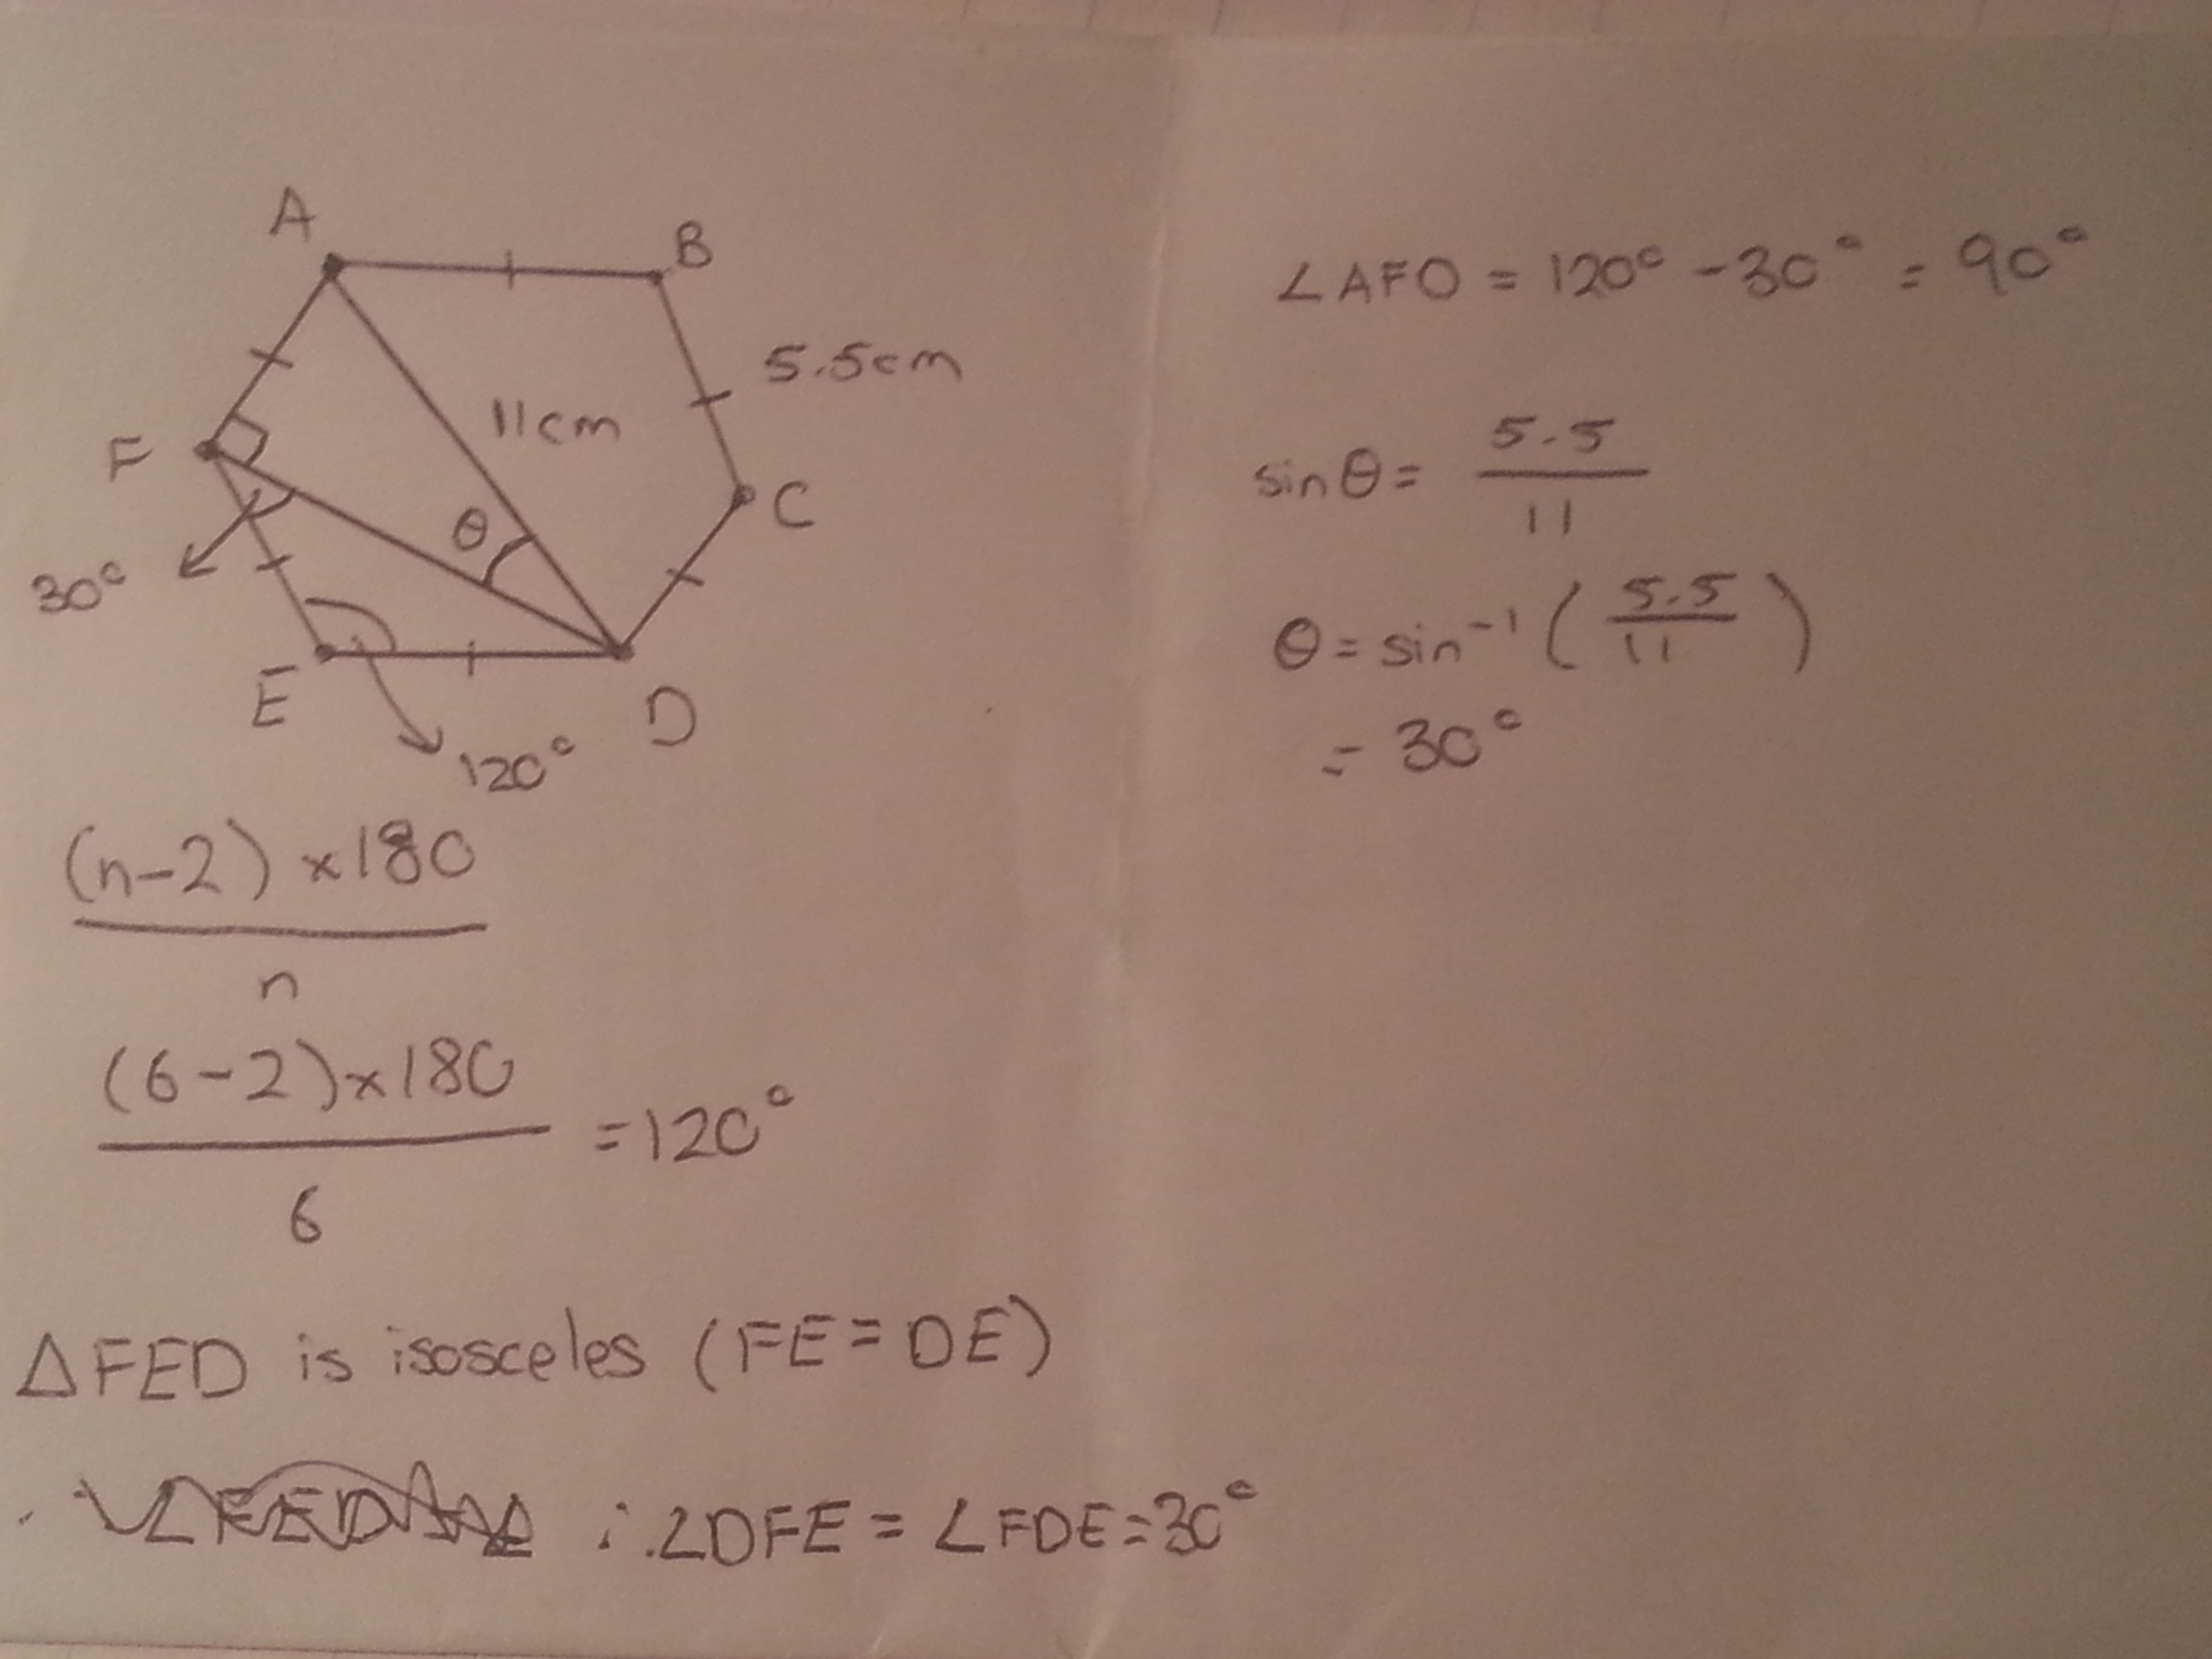 A
B
5.5cm
11cm
F
θ
C
30°
E
D
120°
(n-2) ×180
n
(6-2)×180
=120°
6
△FED is isosceles (FE=DE)
∴∠DFE = ∠FDE=30°
∠AFD = 120° -30° = 90°
sinθ= 5.5
11
θ=sin⁻¹ (5.5
11)
= 30°